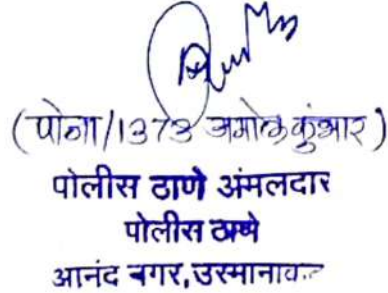 (पोना/1373 अमोल कुंभार)
पोलीस ठाणे अंमलदार
पोलीस ठाणे
आनंद नगर, उस्मानाबाद